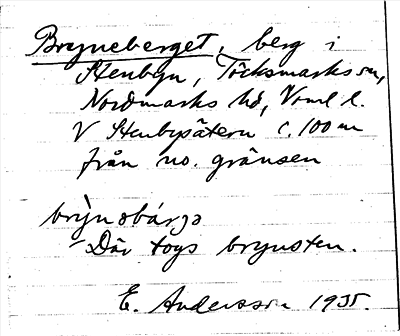 Bryneberget, berg i
Stenbyn, Töcksmarks sn,
Nordmarks hd, Vrml l.
V Stenbysätern c. 100 m
från no. gränsen
brỳnəbárjə
Där togs brynsten.
E. Andersson 1935.